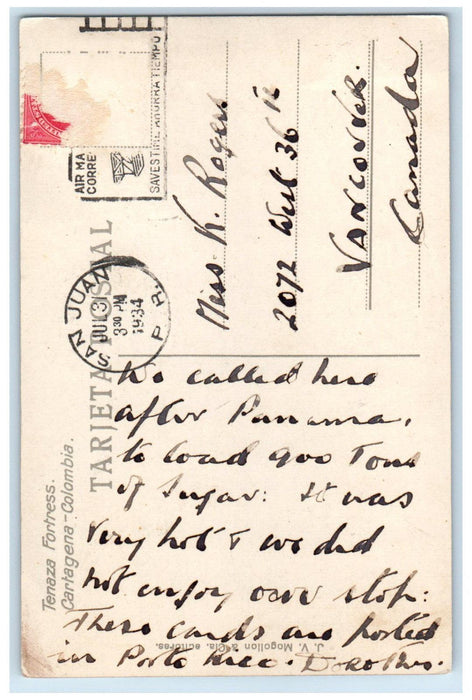 AIR MA
CORRE
SAVES TIME AHORRA TIEMPO
SAN JUAN P.R.
JUL 31
3 30 PM
1934
TARJETA POSTAL
Tenaza Fortress.
Cartagena-Colombia.
J. V. Mogollon & Cia. editores.
Miss K. Rogers
2072 West 36th
VANCOUVER.
Canada
We called here
after Panama,
to load 900 Tons
of Sugar: It was
very hot & we did
not enjoy our stop:
These cards are posted
in Porto Rico. Dorothy.